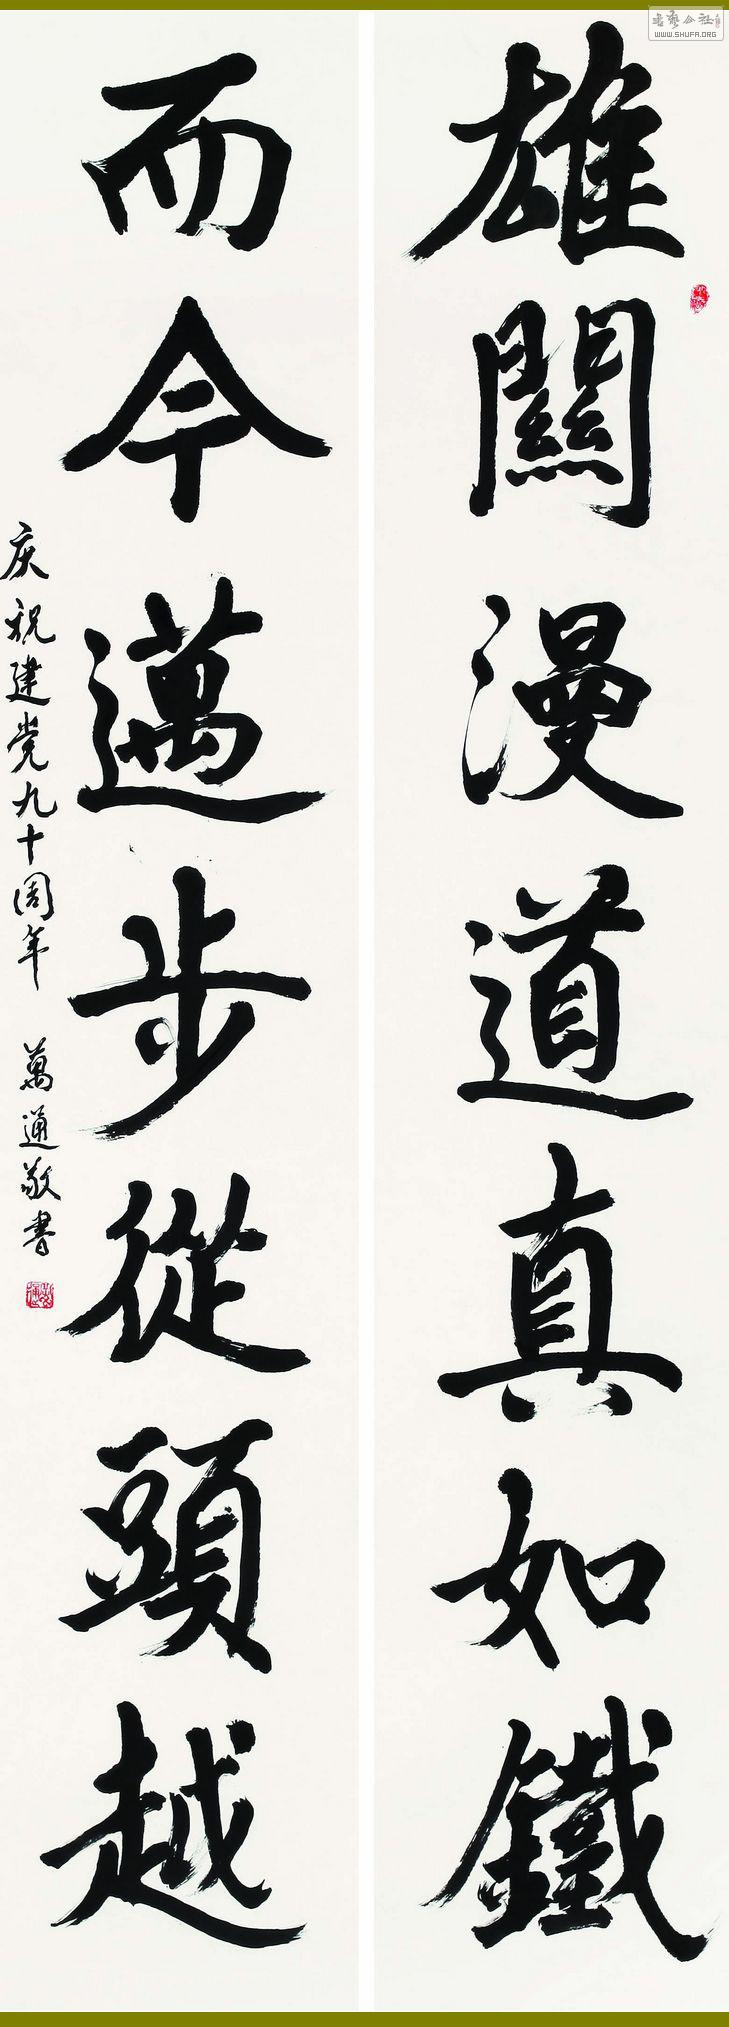 雄關漫道真如鐵
而今邁步從頭越
庆祝建党九十周年 萬通敬書
WWW.SHUFA.ORG